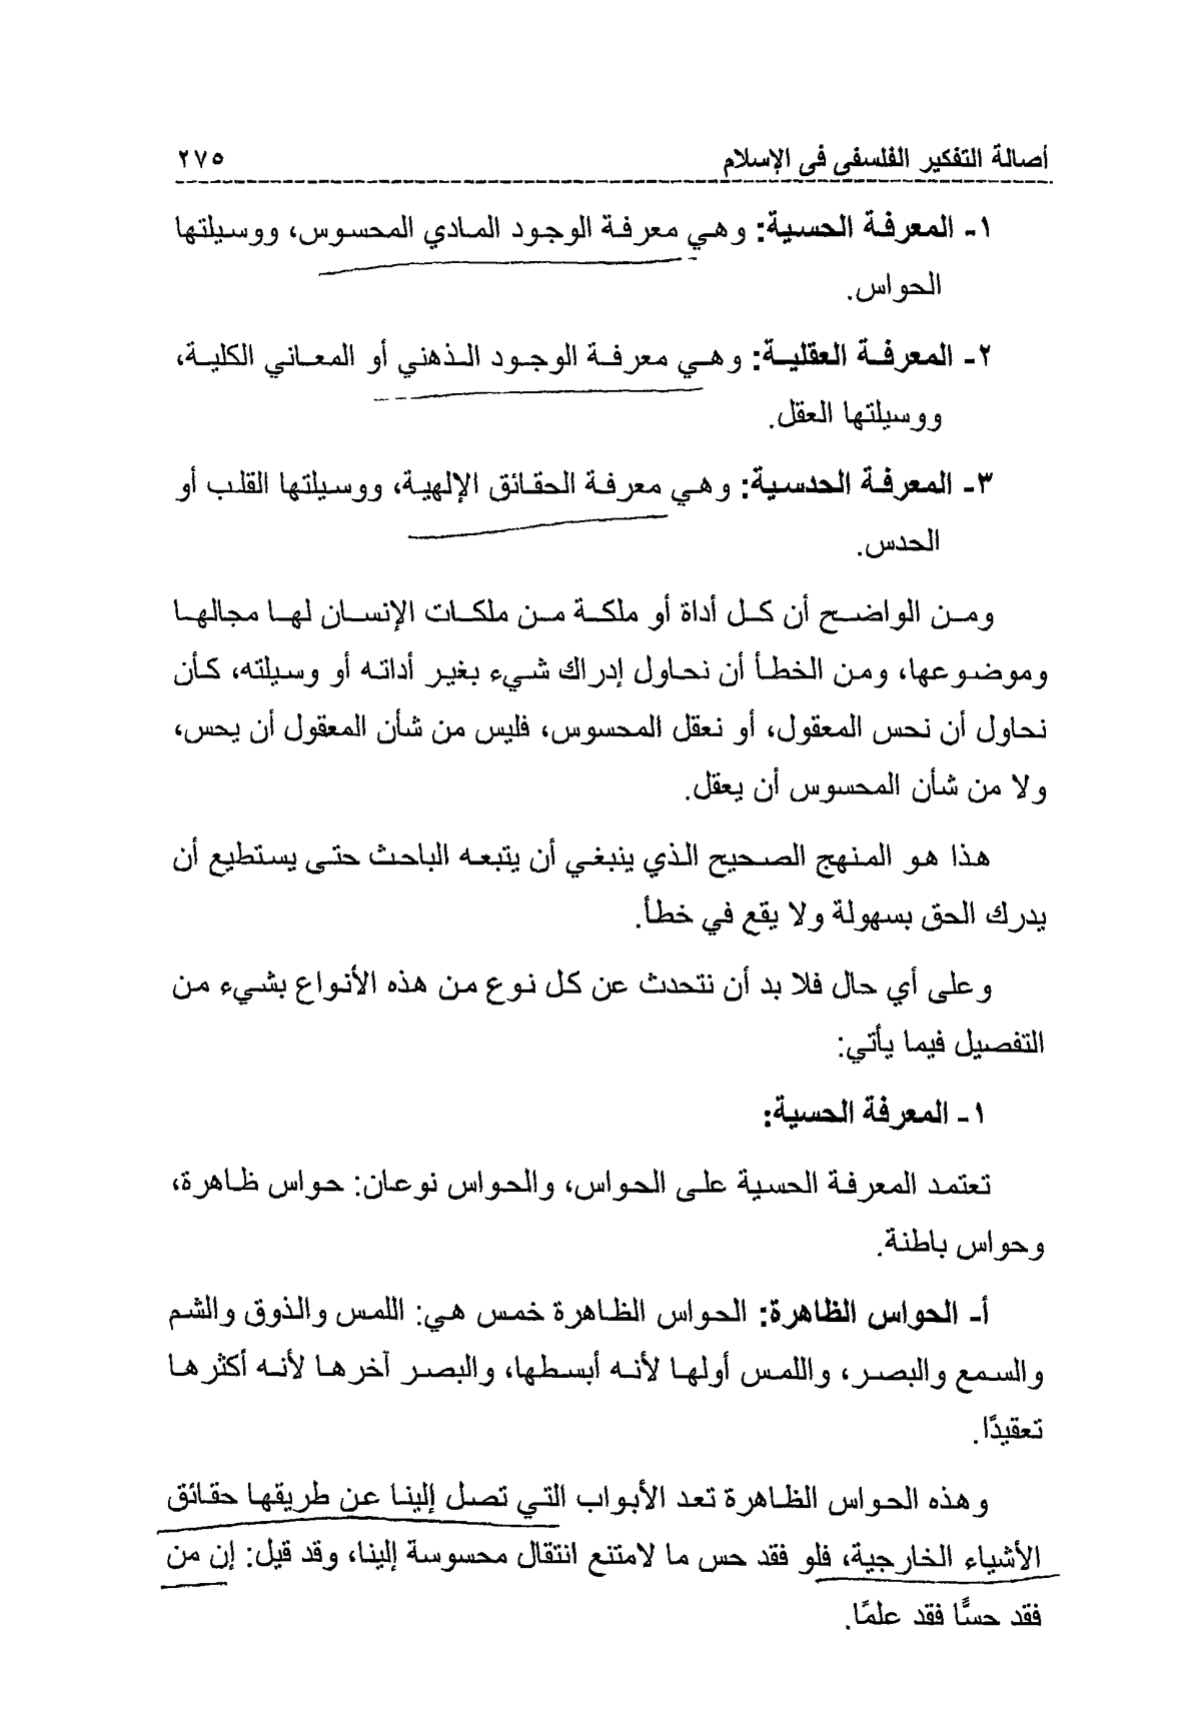 أصالة التفكير الفلسفى فى الإسلام ٢٧٥
١- المعرفة الحسية: وهي معرفة الوجود المادي المحسوس، ووسيلتها
الحواس.
٢- المعرفة العقلية: وهي معرفة الوجود الذهني أو المعاني الكلية،
ووسيلتها العقل.
٣- المعرفة الحدسية: وهي معرفة الحقائق الإلهية، ووسيلتها القلب أو
الحدس.
ومن الواضح أن كل أداة أو ملكة من ملكات الإنسان لها مجالها
وموضوعها، ومن الخطأ أن نحاول إدراك شيء بغير أداته أو وسيلته، كأن
نحاول أن نحس المعقول، أو نعقل المحسوس، فليس من شأن المعقول أن يحس،
ولا من شأن المحسوس أن يعقل.
هذا هو المنهج الصحيح الذي ينبغي أن يتبعه الباحث حتى يستطيع أن
يدرك الحق بسهولة ولا يقع في خطأ.
وعلى أي حال فلا بد أن نتحدث عن كل نوع من هذه الأنواع بشيء من
التفصيل فيما يأتي:
١- المعرفة الحسية:
تعتمد المعرفة الحسية على الحواس، والحواس نوعان: حواس ظاهرة،
وحواس باطنة.
أ- الحواس الظاهرة: الحواس الظاهرة خمس هي: اللمس والذوق والشم
والسمع والبصر، واللمس أولها لأنه أبسطها، والبصر آخرها لأنه أكثرها
تعقيدًا.
وهذه الحواس الظاهرة تعد الأبواب التي تصل إلينا عن طريقها حقائق
الأشياء الخارجية، فلو فقد حس ما لامتنع انتقال محسوسة إلينا، وقد قيل: إن من
فقد حسًّا فقد علمًا.